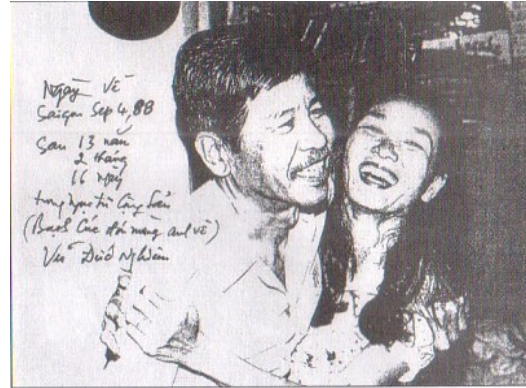 Ngày Về
Saigon Sep 4, 88
Sau 13 năm
2 tháng
16 ngày
trong ngục tù Cộng Sản
(Bạch Cúc đói mừng anh về)
Vũ Đức Nghiêm